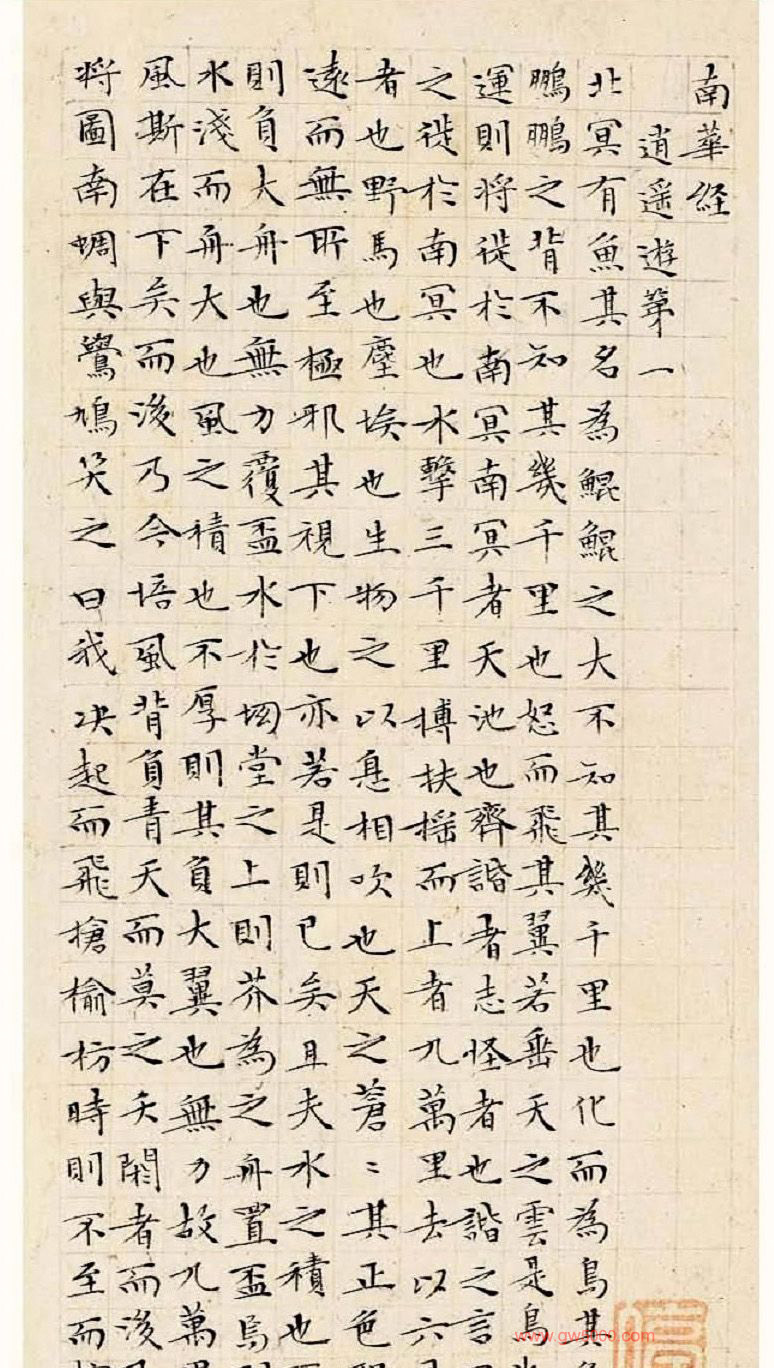 南華経
逍遥遊第一
北冥有魚其名為鯤鯤之大不知其幾千里也化而為鳥其
鵬鵬之背不知其幾千里也怒而飛其翼若垂天之雲是鳥
運則将徙於南冥南冥者天池也齊諧者志怪者也諧之言
之徙於南冥也水擊三千里搏扶摇而上者九萬里去以六
者也野馬也塵埃也生物之以息相吹也天之蒼〻其正色
遠而無所至極邪其視下也亦若是則已矣且夫水之積也
則負大舟也無力覆盃水於坳堂之上則芥為之舟置盃焉
水淺而舟大也風之積也不厚則其負大翼也無力故九萬
風斯在下矣而後乃今培風背負青天而莫之夭閼者而後
将圖南蜩與鷽鳩笑之曰我决起而飛搶榆枋時則不至而